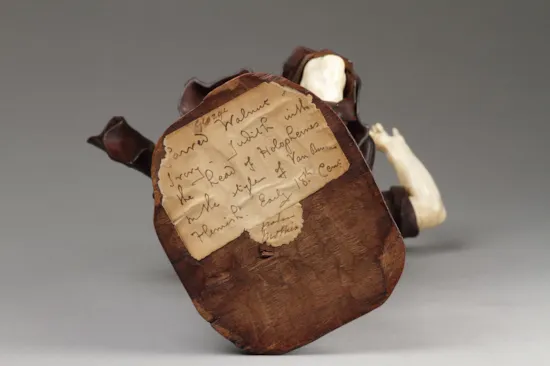 Carved Walnut &
Ivory Judith with
the head of Holophernes
in the style of Van
Flemish. Early 18th Cen.